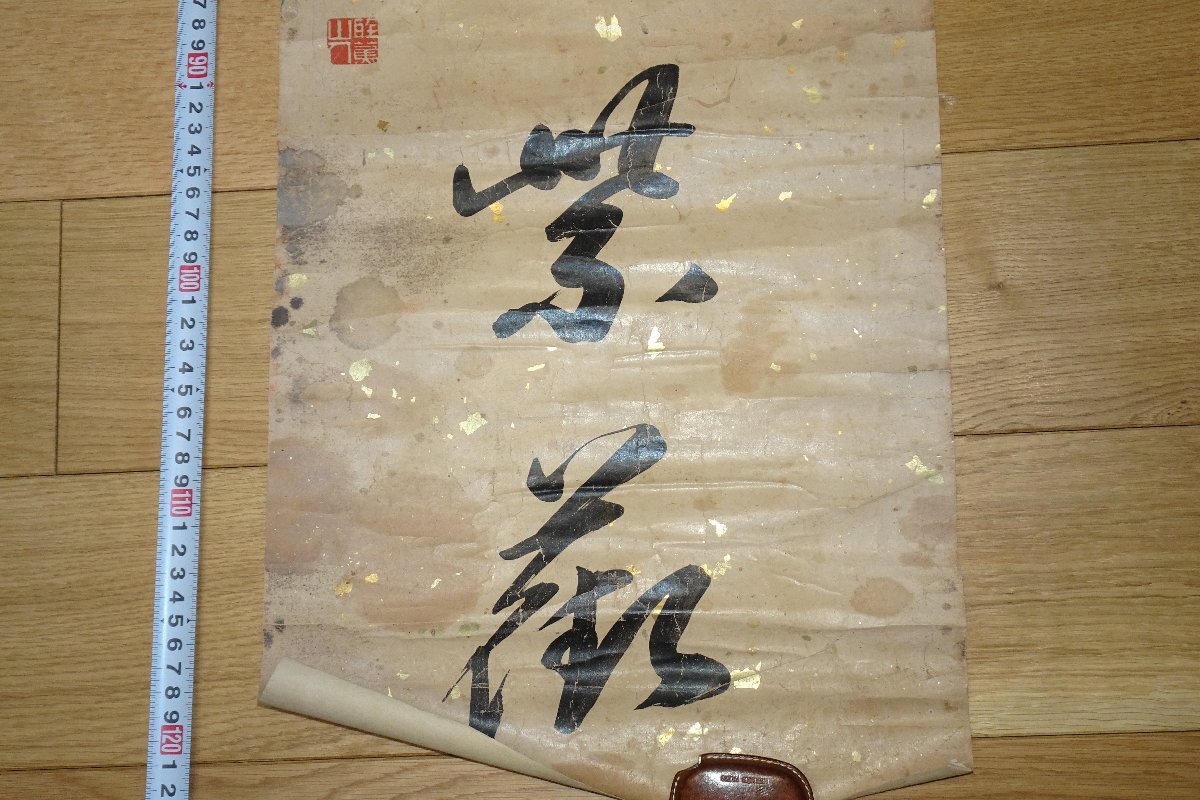 紫薇
7 8 9 90 1 2 3 4 5 6 7 8 9 100 1 2 3 4 5 6 7 8 9 110 1 2 3 4 5 6 7 8 9 120 1 2